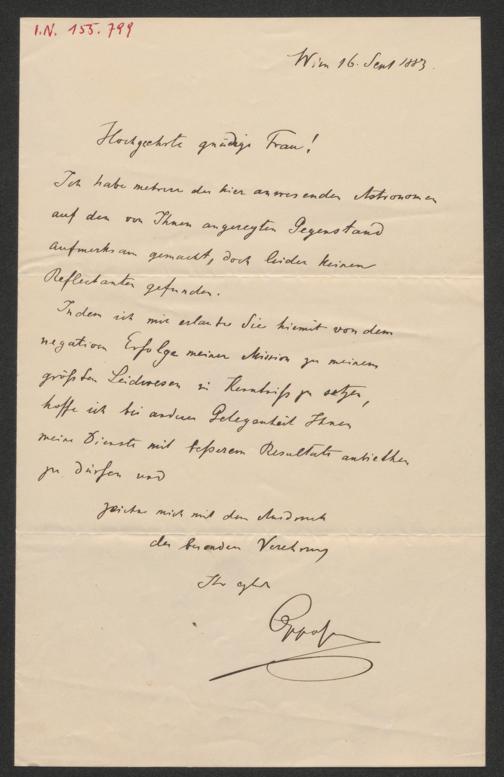 I.N. 155.799
Wien 16. Sept 1883.
Hochgeehrte gnädige Frau!
Ich habe mehrere der hier anwesenden Astronomen
auf den von Ihnen angeregten Gegenstand
aufmerksam gemacht, doch leider keinen
Reflectanten gefunden.
Indem ich mir erlaube Sie hiemit von dem
negativen Erfolge meiner Mission zu meinem
größten Leidwesen in Kenntniß zu setzen,
hoffe ich bei anderer Gelegenheit Ihnen
meine Dienste mit beßerem Resultate anbiethen
zu dürfen und
zeichne mich mit dem Ausdruck
der Verehrung
Ihr
Oppolzer